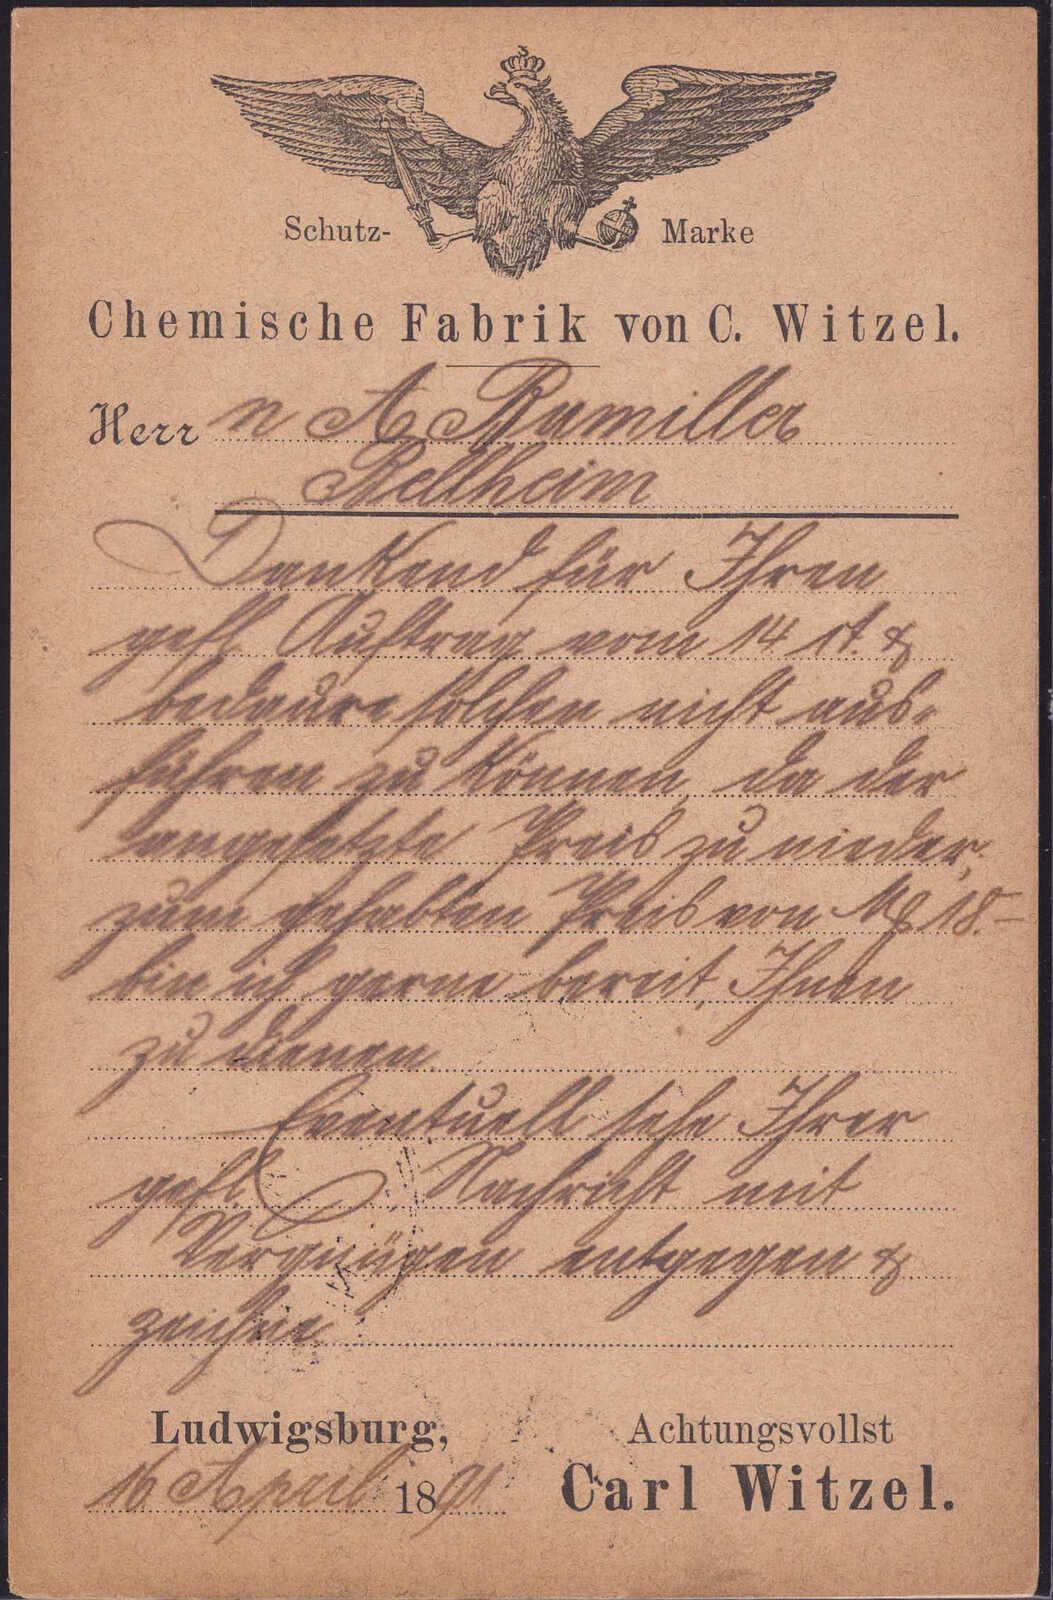 Schutz- Marke
Chemische Fabrik von C. Witzel.
Herrn A Ramiller
Bellheim
Dankend für Ihren
gefl. Auftrag vom 14 ct. &
bedaure solchen nicht aus-
führen zu können, da der
angesetzte Preis zu nieder,
zum gehabten Preis von M 18.–
bin ich gerne bereit, Ihnen
zu dienen.
Eventuell sehe Ihrer
gefl. Nachricht mit
Vergnügen entgegen &
zeichne
Ludwigsburg, Achtungsvollst
16 April 1891 Carl Witzel.